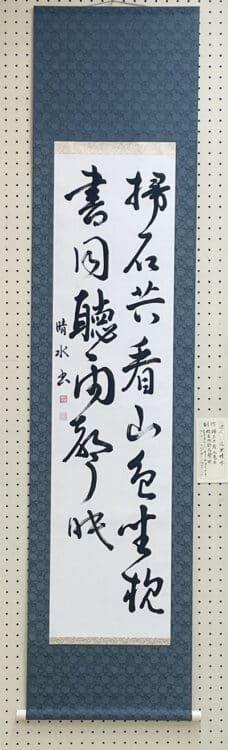 掃石共看山色坐枕
書同聽雨聲眠
晴水書